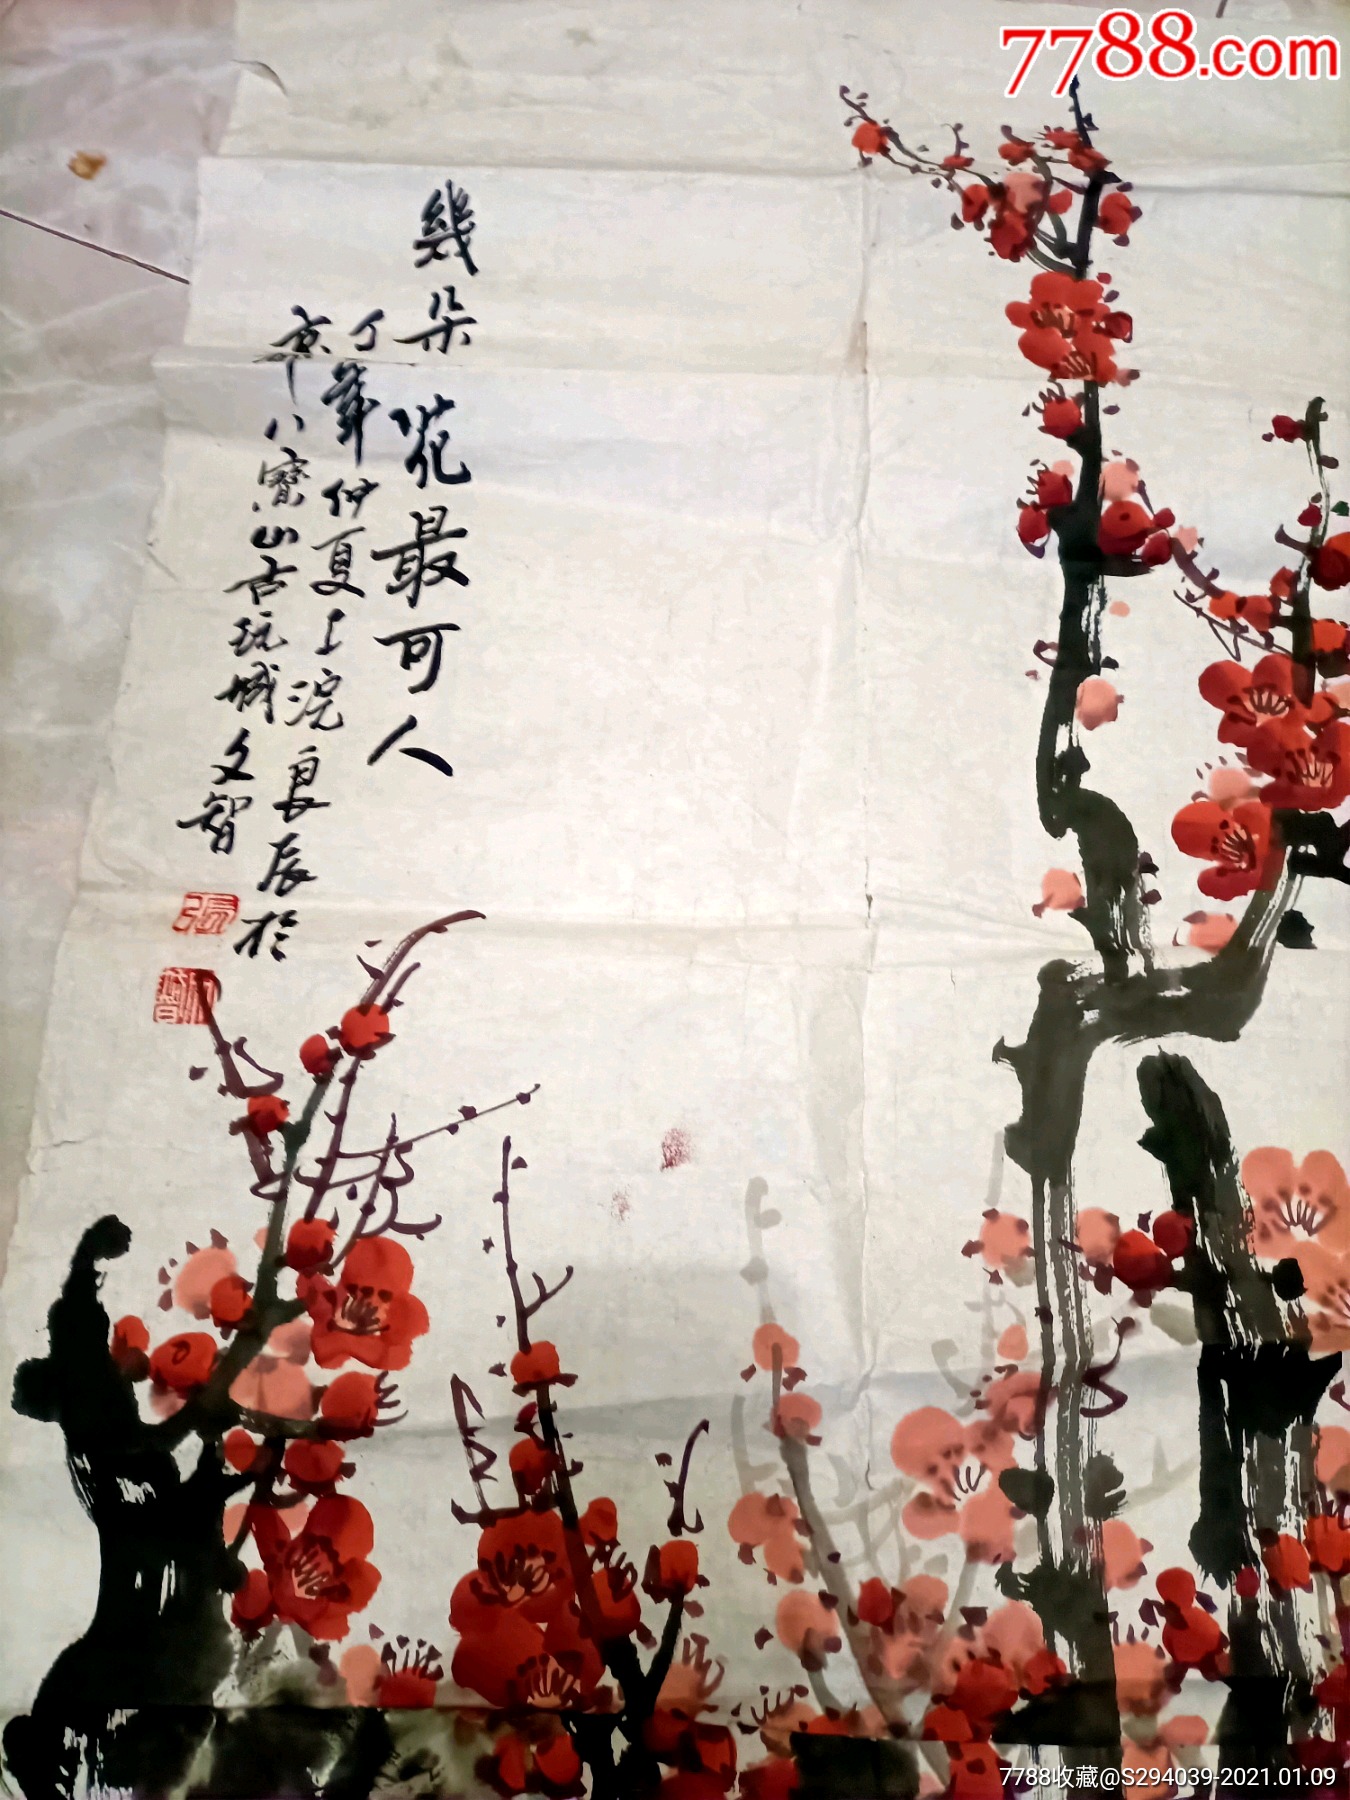 7788.com
幾朵花最可人
丁仲夏上浣良辰於
京八寶山古玩城文智
張
7788收藏@S294039-2021.01.09